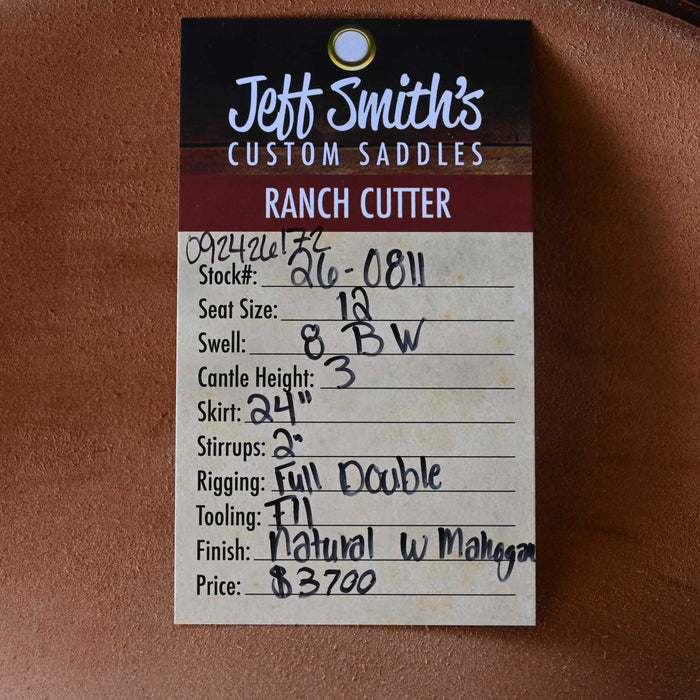 Jeff Smith's
CUSTOM SADDLES
RANCH CUTTER
092426172
Stock#: 26-0811
Seat Size: 12
Swell: 8 BW
Cantle Height: 3
Skirt: 24"
Stirrups: 2"
Rigging: Full Double
Tooling: F11
Finish: Natural w Mahogan
Price: $3700